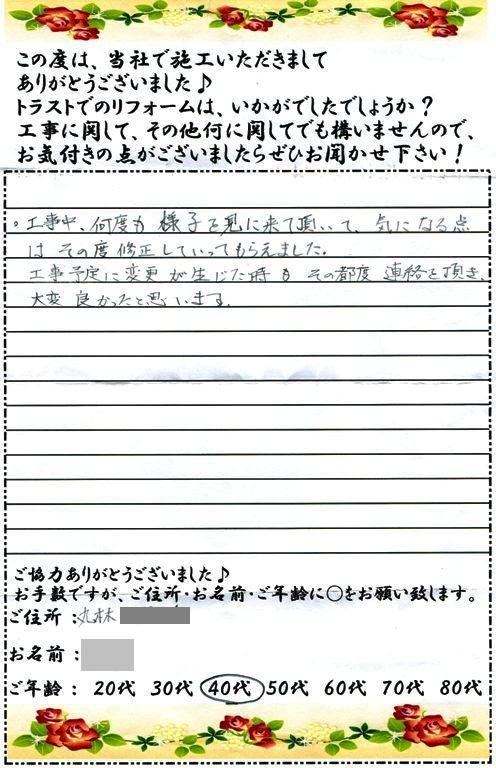 この度は、当社で施工いただきまして
ありがとうございました♪
トラストでのリフォームは、いかがでしたでしょうか？
工事に関して、その他何に関してでも構いませんので、
お気付きの点がございましたらぜひお聞かせ下さい！
。工事中、何度か 様子を見に来て頂いて、気になる点
は その度 修正していってもらえました。
工事予定に変更が生じた時も その都度 連絡を頂き、
大変 良かったと思います。
ご協力ありがとうございました♪
お手数ですが、ご住所・お名前・ご年齢に○をお願い致します。
ご住所：丸林
お名前：
ご年齢： 20代 30代 40代 50代 60代 70代 80代